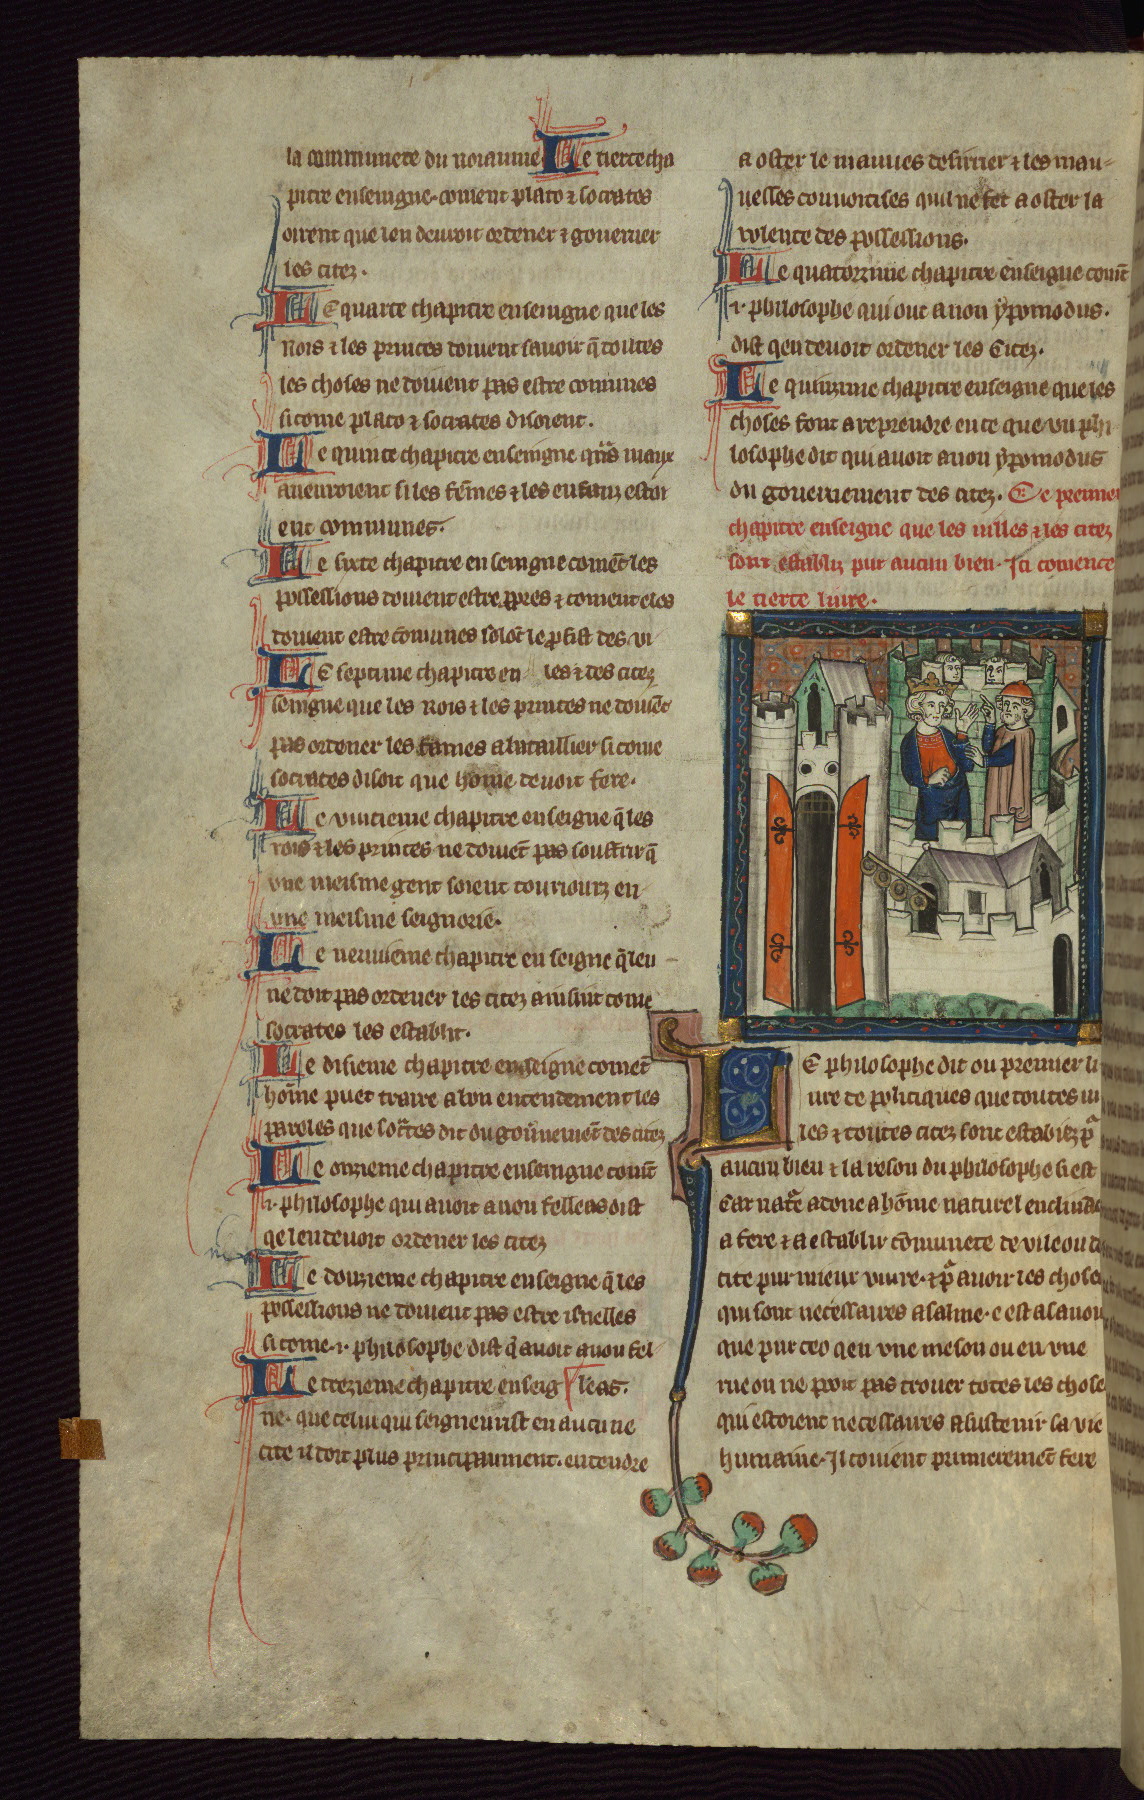 la communete du roiaume Le tierce cha
pitre enseingne. coment plato ⁊ socrates
oirent que len deuoit ordener ⁊ gouerner
les citez.
Le quarte chapitre enseingne que les
Rois ⁊ les princes doiuent sauoir q̃ toutes
les choses ne doiuent pas estre comunes
si come plato ⁊ socrates disoient.
Le quinte chapitre enseingne maux
aueuroient si les fẽmes ⁊ les enfanz estoi
ent communes.
Le sixte chapitre en seingne comẽt les
possessions doiuent estre ꝓpres ⁊ coment eles
doiuent estre cõmunes solõc le ꝓfist des vi
Le septime chapitre en les ⁊ des citez
seingne que les Rois ⁊ les princes ne doiuẽt
pas ordener les fames a bataillier si come
socrates disoit que home deuoit fere.
Le vintieme chapitre enseigne q̃ les
rois ⁊ les princes ne doiuẽt pas soustrir q̃
vne meisme gent soient touriourz en
vne meisme seignorie.
Le neuuieme chapitre en seigne q̃ len
ne doit pas ordener les citez ainsint come
socrates les establit.
Le disieme chapitre enseigne comẽt
hom̃e puet traire a bon entendement les
paroles que socr̃tes dit du gou̾nemẽt des citez
Le onzieme chapitre enseingne comẽt
.i. philosophe qui auoit a non felleas dist
qe len deuoit ordener les citez
Le douzieme chapitre enseigne q̃ les
possessions ne doiuent pas estre isuelles
si come .i. philosophe dist q̃ auoit a non fel
Le trezieme chapitre enseig leas.
ne. que celui qui seigneurist en aucune
cite il doit plus principaument. entendre
a oster le mauues desirrier ⁊ les mau-
uesses couuoitises quil ne fet a oster la
volente des possessions.
Le quatorzime chapitre enseigne comẽt
.i. philosophe qui out a non ypomodus.
dist qen deuoit ordener les Citez.
Le quinzime chapitre enseigne que les
choses font a reprendre en ce que vn phi
losophe dit qui auoit a non ypomodus
du gouernement des citez. Ce premier
chapitre enseigne que les uilles ⁊ les citez
sont establiz pur aucun bien. Ici comence
le tierce liure.
Le philosophe dit ou premier li
ure de politiques que toutes ui
les ⁊ toutes citez sont establez pͣ
aucun bien ⁊ la reson du philosophe si est
Car natr̃e a done a hõme naturel enclinac
a fere ⁊ a establir cõmunete de vile ou de
cite pur mieur viure. ⁊ pͣ auoir les choses
qui sont necessaires a sa uie. c est asauoir
que pur ceo qen vne meson ou en vne
rue on ne poit pas trouer totes les chose
qui estoient necessaires a sustenir sa vie
humaine. Il couient primieremẽt fere